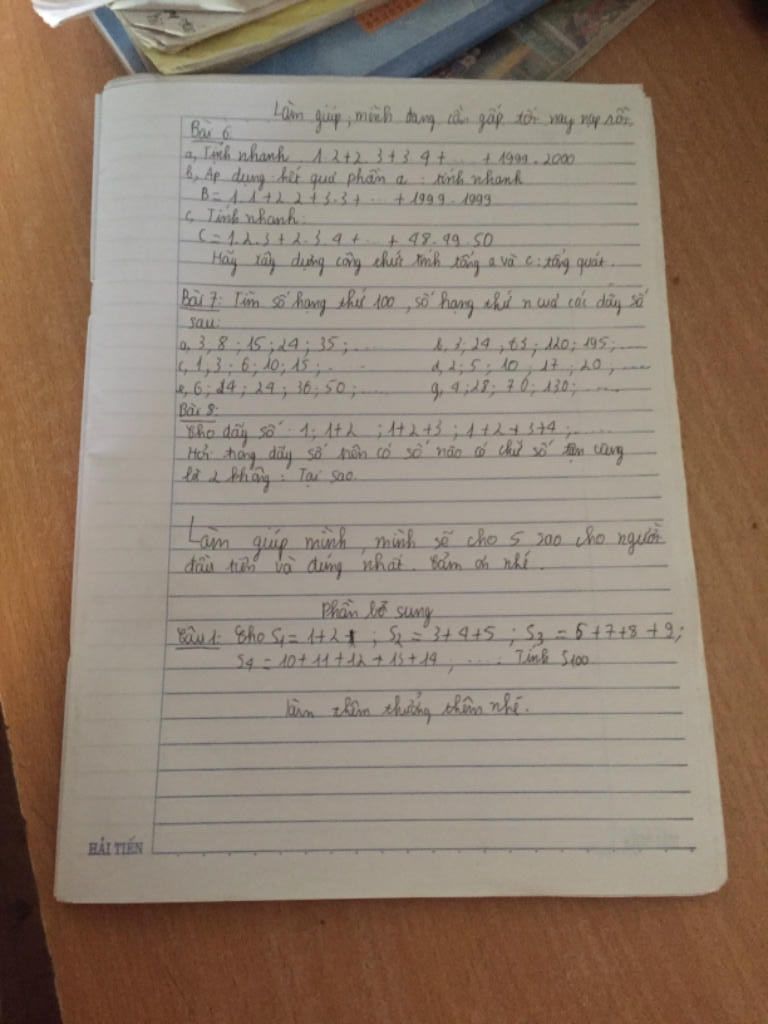 Làm giúp, mình đang cần gấp tối nay nạp rồi.
Bài 6:
a, Tính nhanh. 1.2+2.3+3.4+...+1999.2000
b, Áp dụng kết quả phần a: tính nhanh
B=1.1+2.2+3.3+...+1999.1999
c, Tính nhanh:
C=1.2.3+2.3.4+...+48.49.50
Hãy xây dựng công thức tính tổng a và c: tổng quát.
Bài 7: Tìm số hạng thứ 100, số hạng thứ n của các dãy số
sau:
a, 3; 8; 15; 24; 35; .... b, 3; 24; 63; 120; 195; ....
c, 1; 3; 6; 10; 15; .... d, 2; 5; 10; 17; 20; ....
e, 6; 14; 24; 36; 50; .... g, 4; 28; 70; 130; ....
Bài 8:
Cho dãy số: 1; 1+2; 1+2+3; 1+2+3+4; ....
Hỏi trong dãy số trên có số nào có chữ số tận cùng
là 2 không: Tại sao.
Làm giúp mình, mình sẽ cho 5 sao cho người
đầu tiên và đúng nhất. Cảm ơn nhé.
Phần bổ sung
Câu 1: Cho S1=1+2; S2=3+4+5; S3=6+7+8+9;
S4=10+11+12+13+14; .... Tính S100
làm thêm thưởng thêm nhé.
HẢI TIẾN